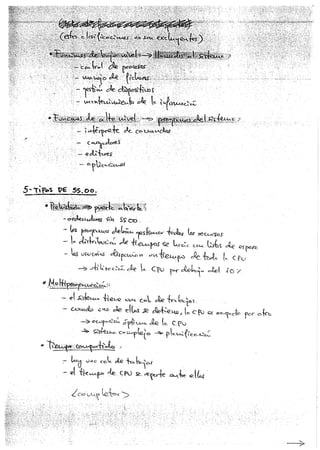 (estas clasificaciones no son excluyentes)
• Funciones de bajo nivel → llamadas al sistema:
- control de procesos
- manejo de ficheros
- gestión de dispositivos
- mantenimiento de la información
• Funciones de alto nivel → programas del sistema:
- intérprete de comandos
- cargadores
- editores
- aplicaciones
5- TIPOS DE SS.OO.
abierta:
- ordenadores sin SSOO
- los programas debían gestionar todos los recursos
- la distribución de tiempos se hacía con listas de espera
- los usuarios disponían un tiempo de toda la CPU
→ utilización de la CPU por debajo del 10%
• Multiprogramación:
- el sistema tiene una cola de trabajos
- cuando uno de ellos se detiene, la CPU es ocupada por otro
→ ocupación óptima de la CPU
→ sistema complejo → planificación
• Tiempo compartido:
- hay una cola de trabajos
- el tiempo de CPU se reparte entre ellos
<completar>